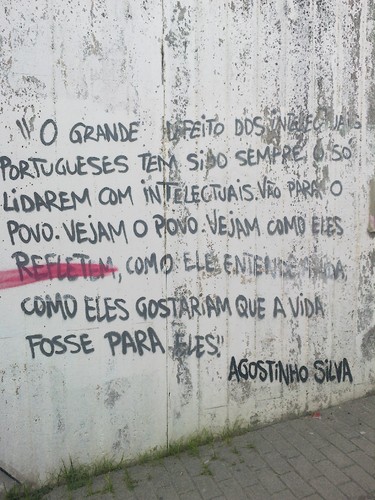 "O GRANDE DEFEITO DOS INTELECTUAIS
PORTUGUESES TEM SIDO SEMPRE O SÓ
LIDAREM COM INTELECTUAIS. VÃO PARA O
POVO. VEJAM O POVO. VEJAM COMO ELES
REFLETEM, COMO ELE ENTENDEM A VIDA,
COMO ELES GOSTARIAM QUE A VIDA
FOSSE PARA ELES."
AGOSTINHO SILVA